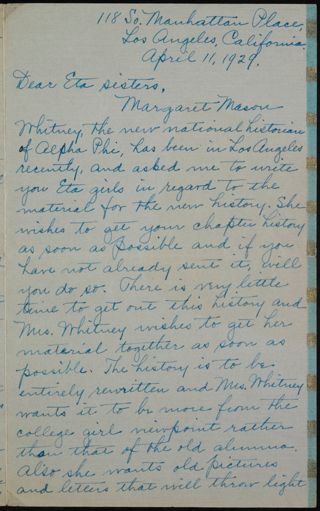 118 So. Manhattan Place,
Los Angeles, California.
April 11, 1929.
Dear Eta sisters,
Margaret Mason
Whitney, the new national historian
of Alpha Phi, has been in Los Angeles
recently, and asked me to write
you Eta girls in regard to the
material for the new history. She
wishes to get your chapter history
as soon as possible and if you
have not already sent it, will
you do so. There is very little
time to get out this history and
Mrs. Whitney wishes to get her
material together as soon as
possible. The history is to be
entirely rewritten and Mrs. Whitney
wants it to be more from the
college girl viewpoint rather
than that of the old alumna.
Also she wants old pictures
and letters that will throw light